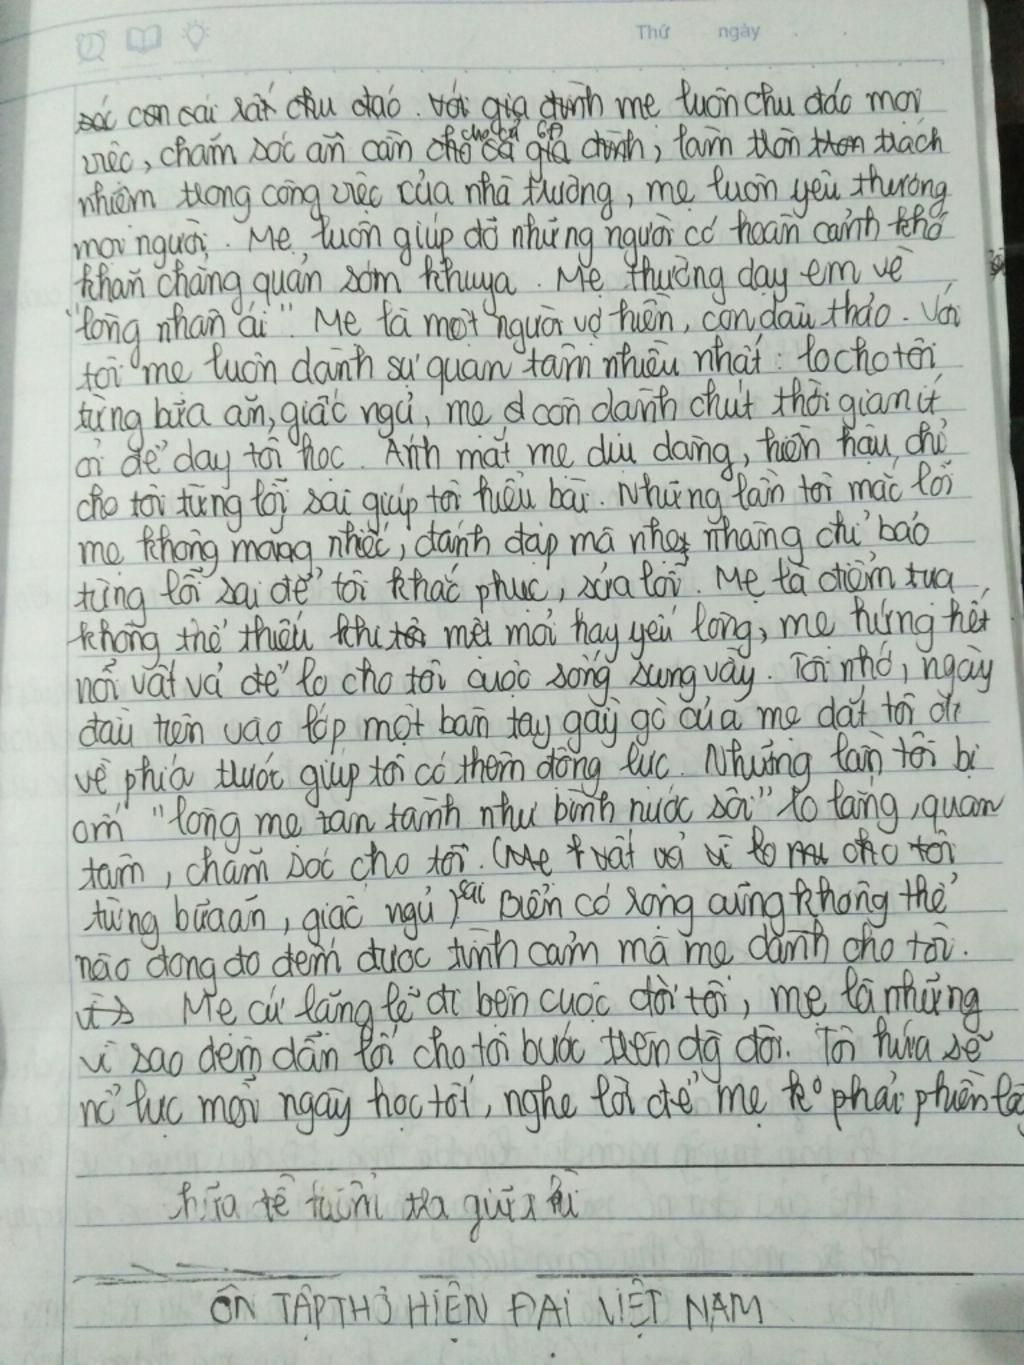 Thứ ngày
sóc con cái rất chu đáo. Với gia đình mẹ luôn chu đáo mọi
việc, chăm sóc ân cần cho cả gia đình, tâm hồn trách
nhiệm trong công việc của nhà trường, mẹ luôn yêu thương
mọi người. Mẹ luôn giúp đỡ những người có hoàn cảnh khó
khăn chẳng quản sớm khuya. Mẹ thường dạy em về
"lòng nhân ái" Mẹ là một người vợ hiền, con dâu thảo. Với
tôi mẹ luôn dành sự quan tâm nhiều nhất: lo cho tôi
từng bữa ăn, giấc ngủ, mẹ còn dành chút thời gian ít
ỏi để dạy tôi học. Ánh mắt mẹ dịu dàng, hiền hậu, chỉ
cho tôi từng lỗi sai giúp tôi hiểu bài. Những lần tôi mắc lỗi
mẹ không mắng nhiếc, đánh đập mà nhẹ nhàng chỉ bảo
từng lỗi sai để tôi khắc phục, sửa lỗi. Mẹ là điểm tựa
không thể thiếu khi tôi mệt mỏi hay yếu lòng, mẹ hứng hết
nỗi vất vả để lo cho tôi cuộc sống sung vầy. Tôi nhớ, ngày
đầu tiên vào lớp một bàn tay gầy gò của mẹ dắt tôi đi
về phía trước giúp tôi có thêm động lực. Những lần tôi bị
ốm "lòng mẹ tan tành như bình nước sôi" lo lắng, quan
tâm, chăm sóc cho tôi. (Mẹ vất vả vì lo cho tôi
từng bữa ăn, giấc ngủ) sai Biển có rộng cũng không thể
nào đong đo đếm được tình cảm mà mẹ dành cho tôi.
Mẹ cứ lặng lẽ đi bên cuộc đời tôi, mẹ là những
vì sao đêm dẫn lối cho tôi bước trên đg đời. Tôi hứa sẽ
nỗ lực mỗi ngày học tốt, nghe lời để mẹ k° phải phiền
ÔN TẬP THƠ HIỆN ĐẠI VIỆT NAM